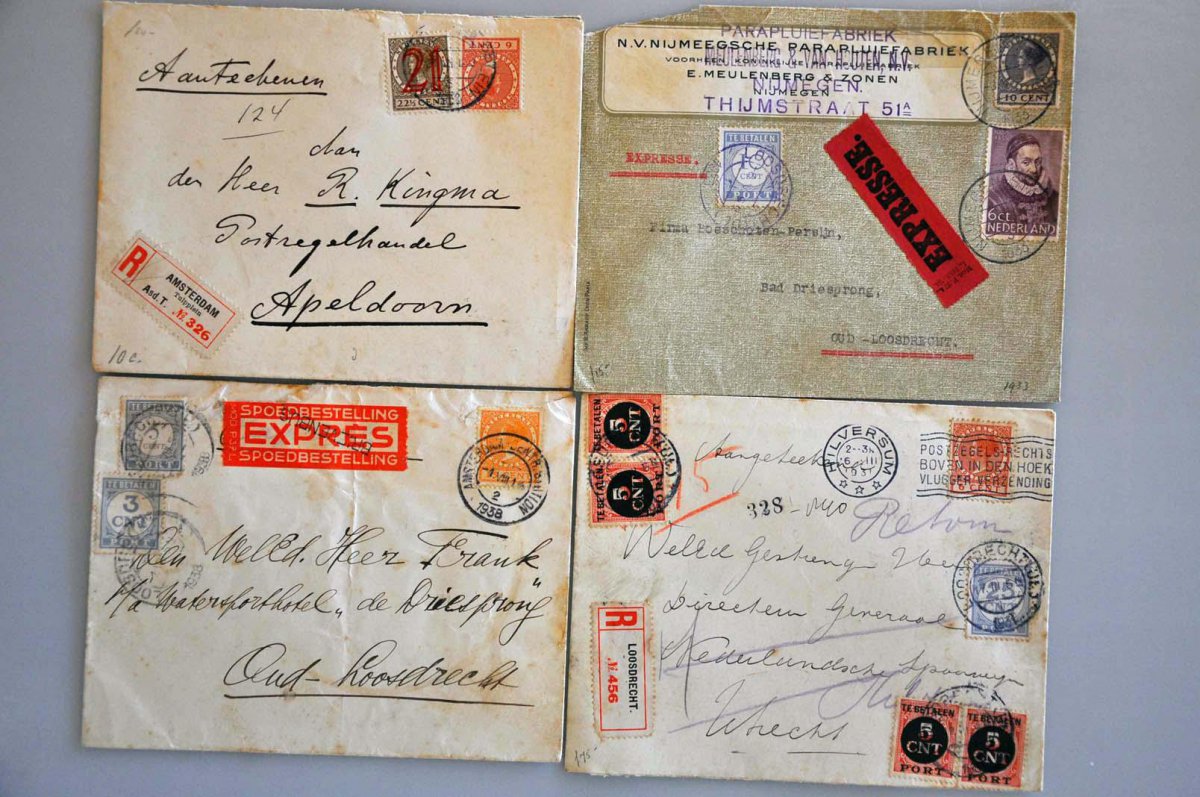 Aantekenen
124
Aan
den Heer R. Kingma
Postzegelhandel
Apeldoorn
21
22½ CENT
6 CENT
R
AMSTERDAM
Tulpplein
Asd. T № 326
10 c.
PARAPLUIEFABRIEK
N.V. NIJMEEGSCHE PARAPLUIEFABRIEK
MEULENBERG
VOORHEEN KONINKLIJKE PARAPLUIEFABRIEK
E. MEULENBERG & ZONEN
NIJMEGEN
NIJMEGEN.
THIJMSTRAAT 51A
10 CENT
TE BETALEN
CENT
PORT
EXPRESSE.
EXPRESSE.
6ct
NEDERLAND
Firma
Bad Driesprong,
OUD-LOOSDRECHT.
1933
TE BETALEN
PORT
TE BETALEN
3
CNT
PORT
SPOEDBESTELLING
EXPRES
SPOEDBESTELLING
AMSTERDAM CENTRAALSTATION
2
1938
1938
1938
Den WelEd. Heer Frank
p/a Watersporthotel „de Driesprong"
Oud-Loosdrecht
TE BETALEN
5
CNT
PORT
TE BETALEN
5
CNT
PORT
Aangeteek
HILVERSUM
POSTZEGELS RECHTS
BOVEN IN DEN HOEK
VLUGGER VERZENDING
6 CENT
328
Retour
Directeur Generaal
Nederlandsche
Utrecht
R
LOOSDRECHT.
№ 456
TE BETALEN
5
CNT
PORT
TE BETALEN
5
CNT
PORT